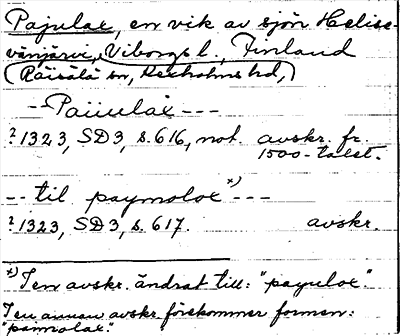 Pajulax, en vik av sjön Helise-
vänjärvi, Viborgs l., Finland
(Räisälä sn, Kexholms hd,)
-- Paiiulax ---
? 1323, SD 3, s. 616, not. avskr. fr.
1500-talet.
-- til paymolax *) ---
? 1323, SD 3, s. 617. avskr.
*) I en avskr. ändrat till: "payulax".
I en annan avskr. förekommer formen:
"paimolax".